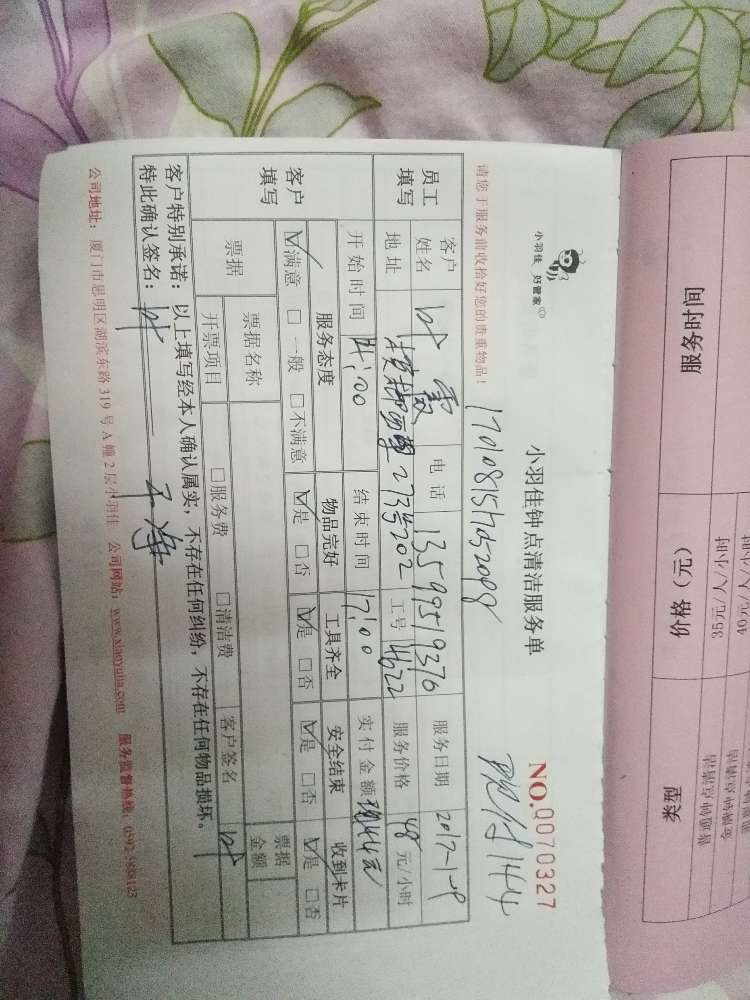 小羽佳 好管家
小羽佳钟点清洁服务单
NO.0070327
请您于服务前收拾好您的贵重物品！
现付144
员工填写
客户姓名 叶雪 电话 13599519376 服务日期 2017-1-9
地址 273号202 工号 4622 服务价格 48 元/小时
开始时间 14:00 结束时间 17:00 实付金额 现144元
客户填写
服务态度 物品完好 工具齐全 安全结束 收到卡片
☑满意 □一般 □不满意 ☑是 □否 ☑是 □否 ☑是 □否 ☑是 □否
票据 票据名称 票据金额
开票项目 □服务费 □清洁费 客户签名 叶
客户特别承诺：以上填写经本人确认属实，不存在任何纠纷，不存在任何物品损坏。
特此确认签名：叶
公司地址：厦门市思明区湖滨东路319号A幢2层小羽佳 公司网站：www.xiaoyujia.com 服务监督热线：0592-5888123
服务时间 价格（元） 类型
35元/人/小时 普通钟点清洁
40元/人/小时